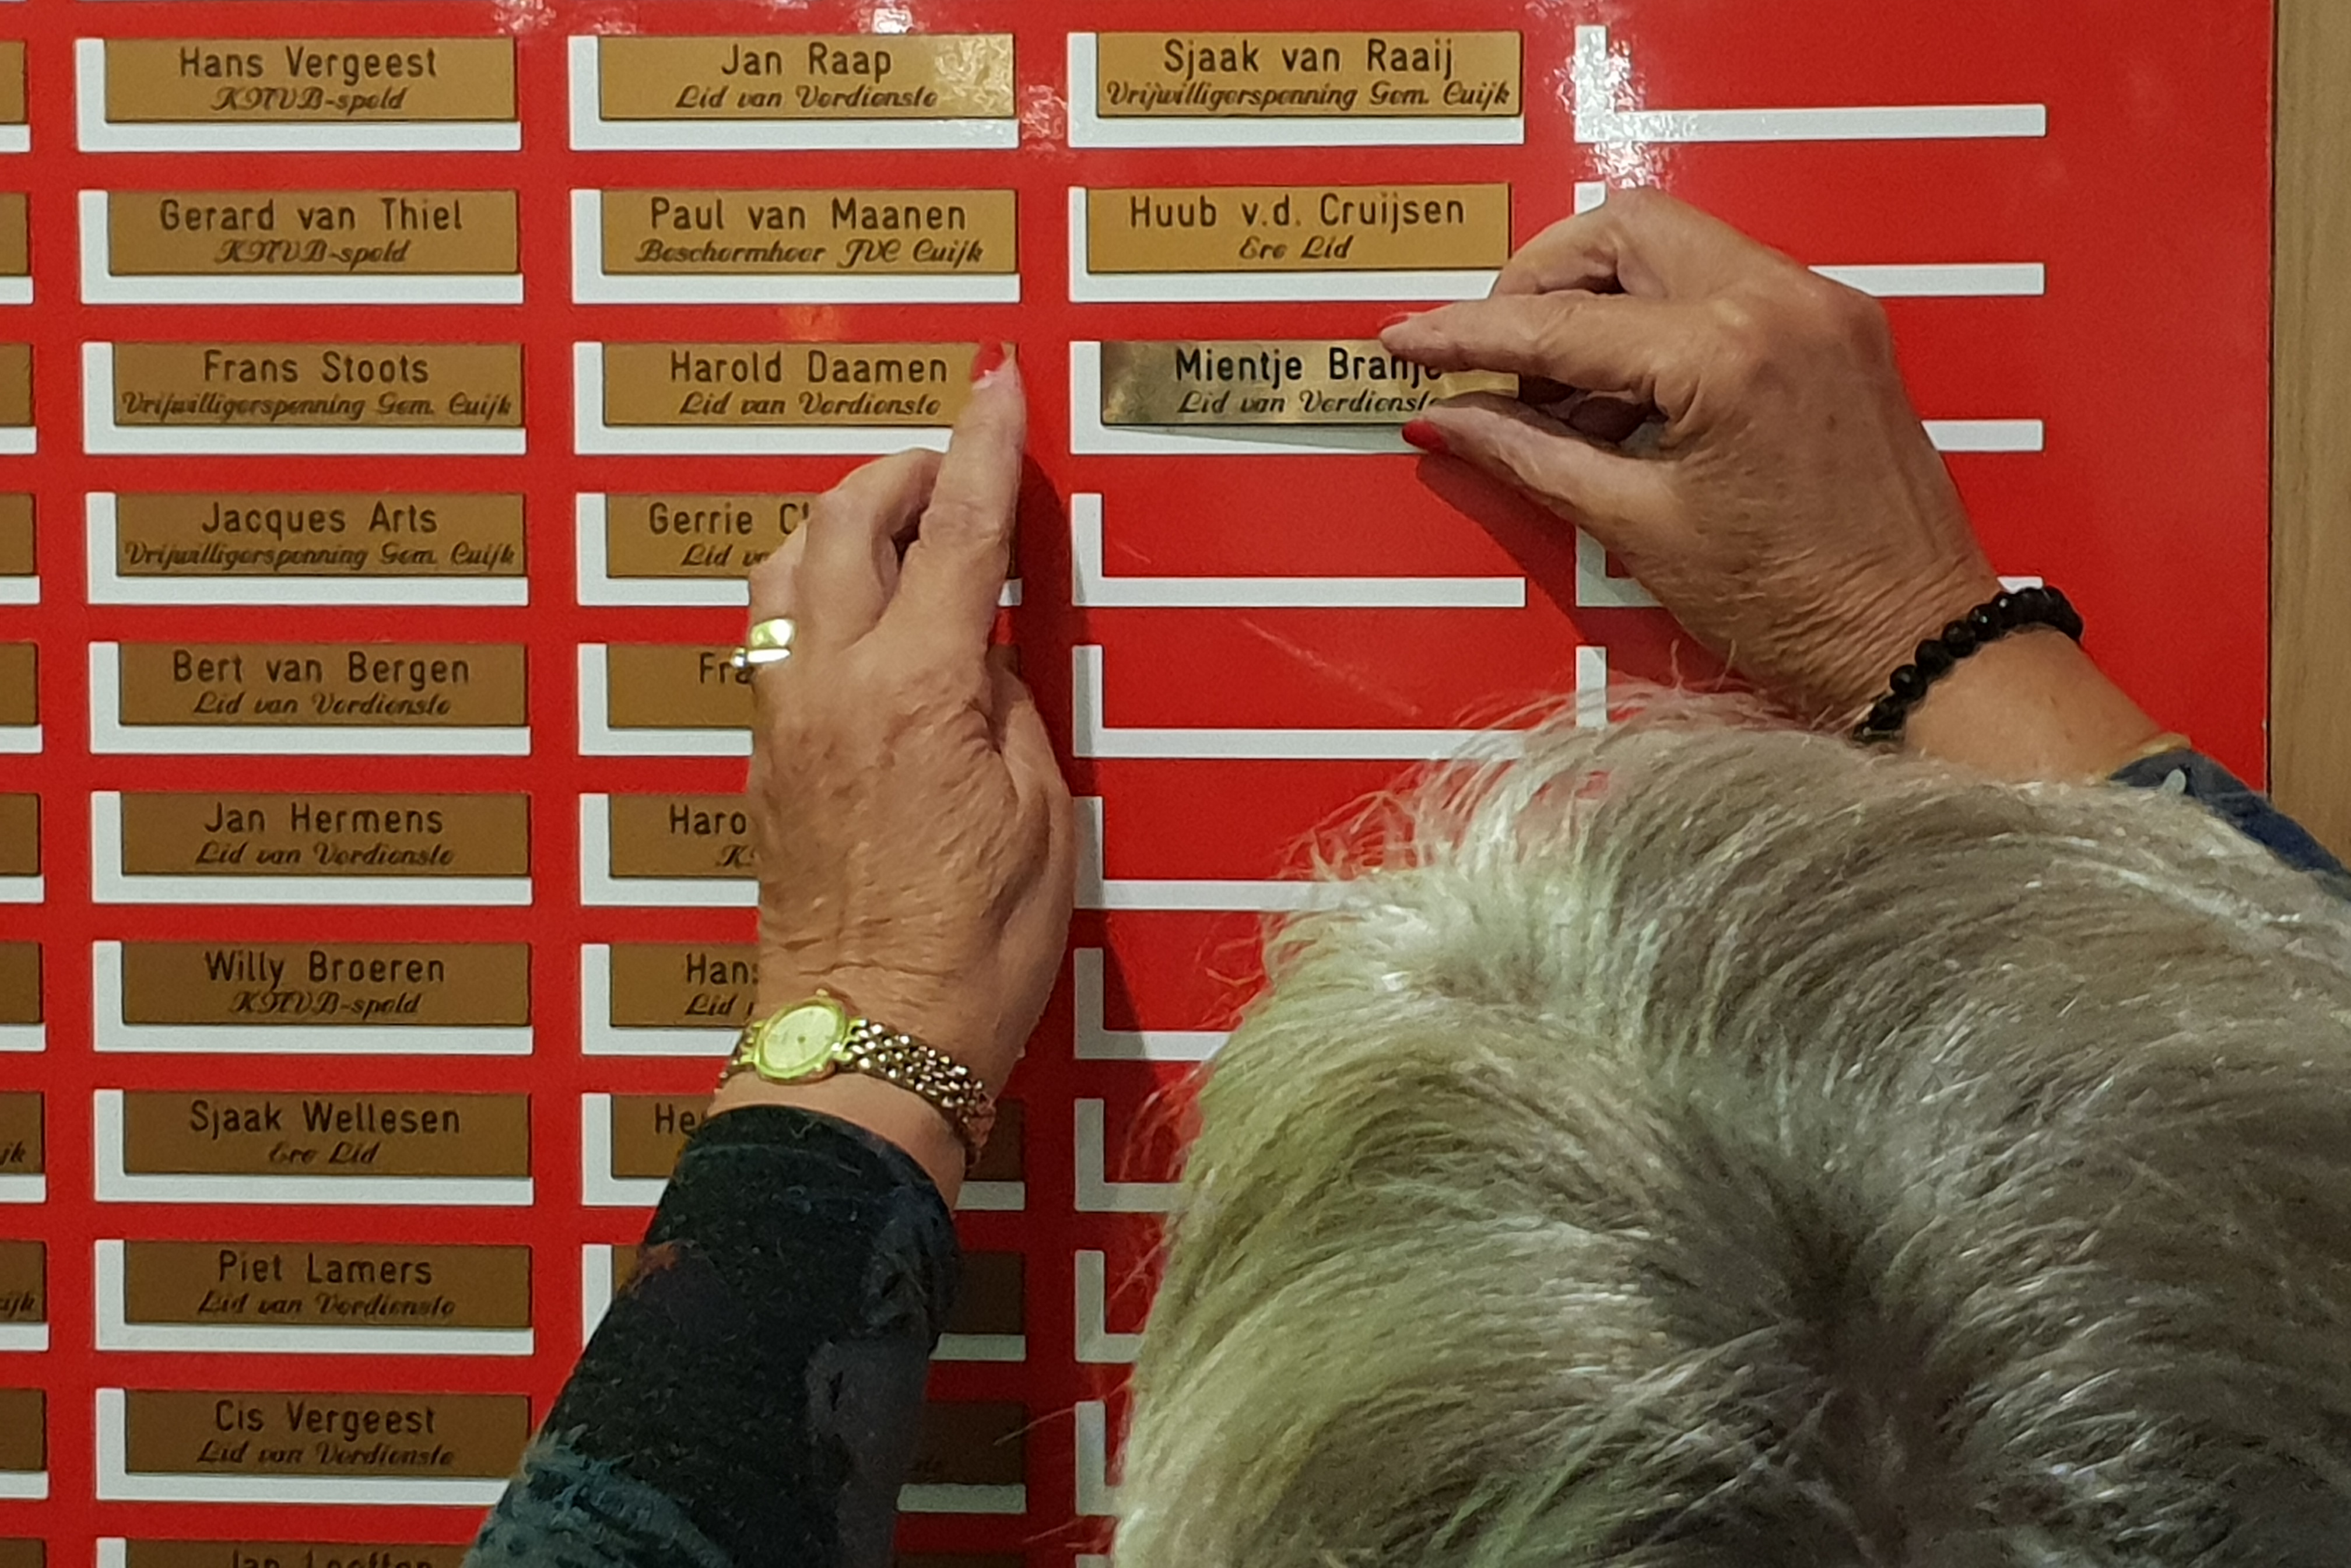 Hans Vergeest
KNVB-speld
Jan Raap
Lid van Verdienste
Sjaak van Raaij
Vrijwilligerspenning Gem. Cuijk
Gerard van Thiel
KNVB-speld
Paul van Maanen
Beschermheer JVC Cuijk
Huub v.d. Cruijsen
Ere Lid
Frans Stoots
Vrijwilligerspenning Gem. Cuijk
Harold Daamen
Lid van Verdienste
Mientje
Lid van Verdienste
Jacques Arts
Vrijwilligerspenning Gem. Cuijk
Gerrie
Lid
Bert van Bergen
Lid van Verdienste
Jan Hermens
Lid van Verdienste
Willy Broeren
KNVB-speld
Lid
Sjaak Wellesen
Ere Lid
Piet Lamers
Lid van Verdienste
Cis Vergeest
Lid van Verdienste
Jan